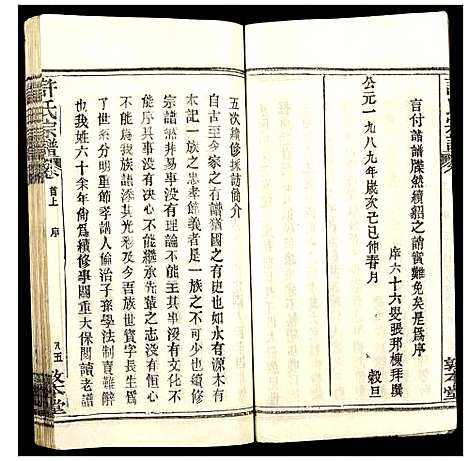 言付諧譜牒然續紹之誚實難免矣是爲序
序六十六叟張邦棟拜撰
公元一九八九年歲次己巳仲春月
穀旦
敦本堂
五次續修採訪簡介
自古至今家之有譜猶國之有史也如水有源木有
本記一族之忠孝節義者是一族之不可少也續修
宗譜事非易事没有理論不能主其事没有文化不
能作序其事没有决心不能継承先輩之志没有恒心
不能爲我族添其光彩及今吾族世寳字長生爲
首倡導重節孝訓人倫治子孫學法制賣雜辭
也我姓六十余年尚爲續修事關重大保閱讀老譜
許氏宗譜
卷首上
序
五
敦本堂